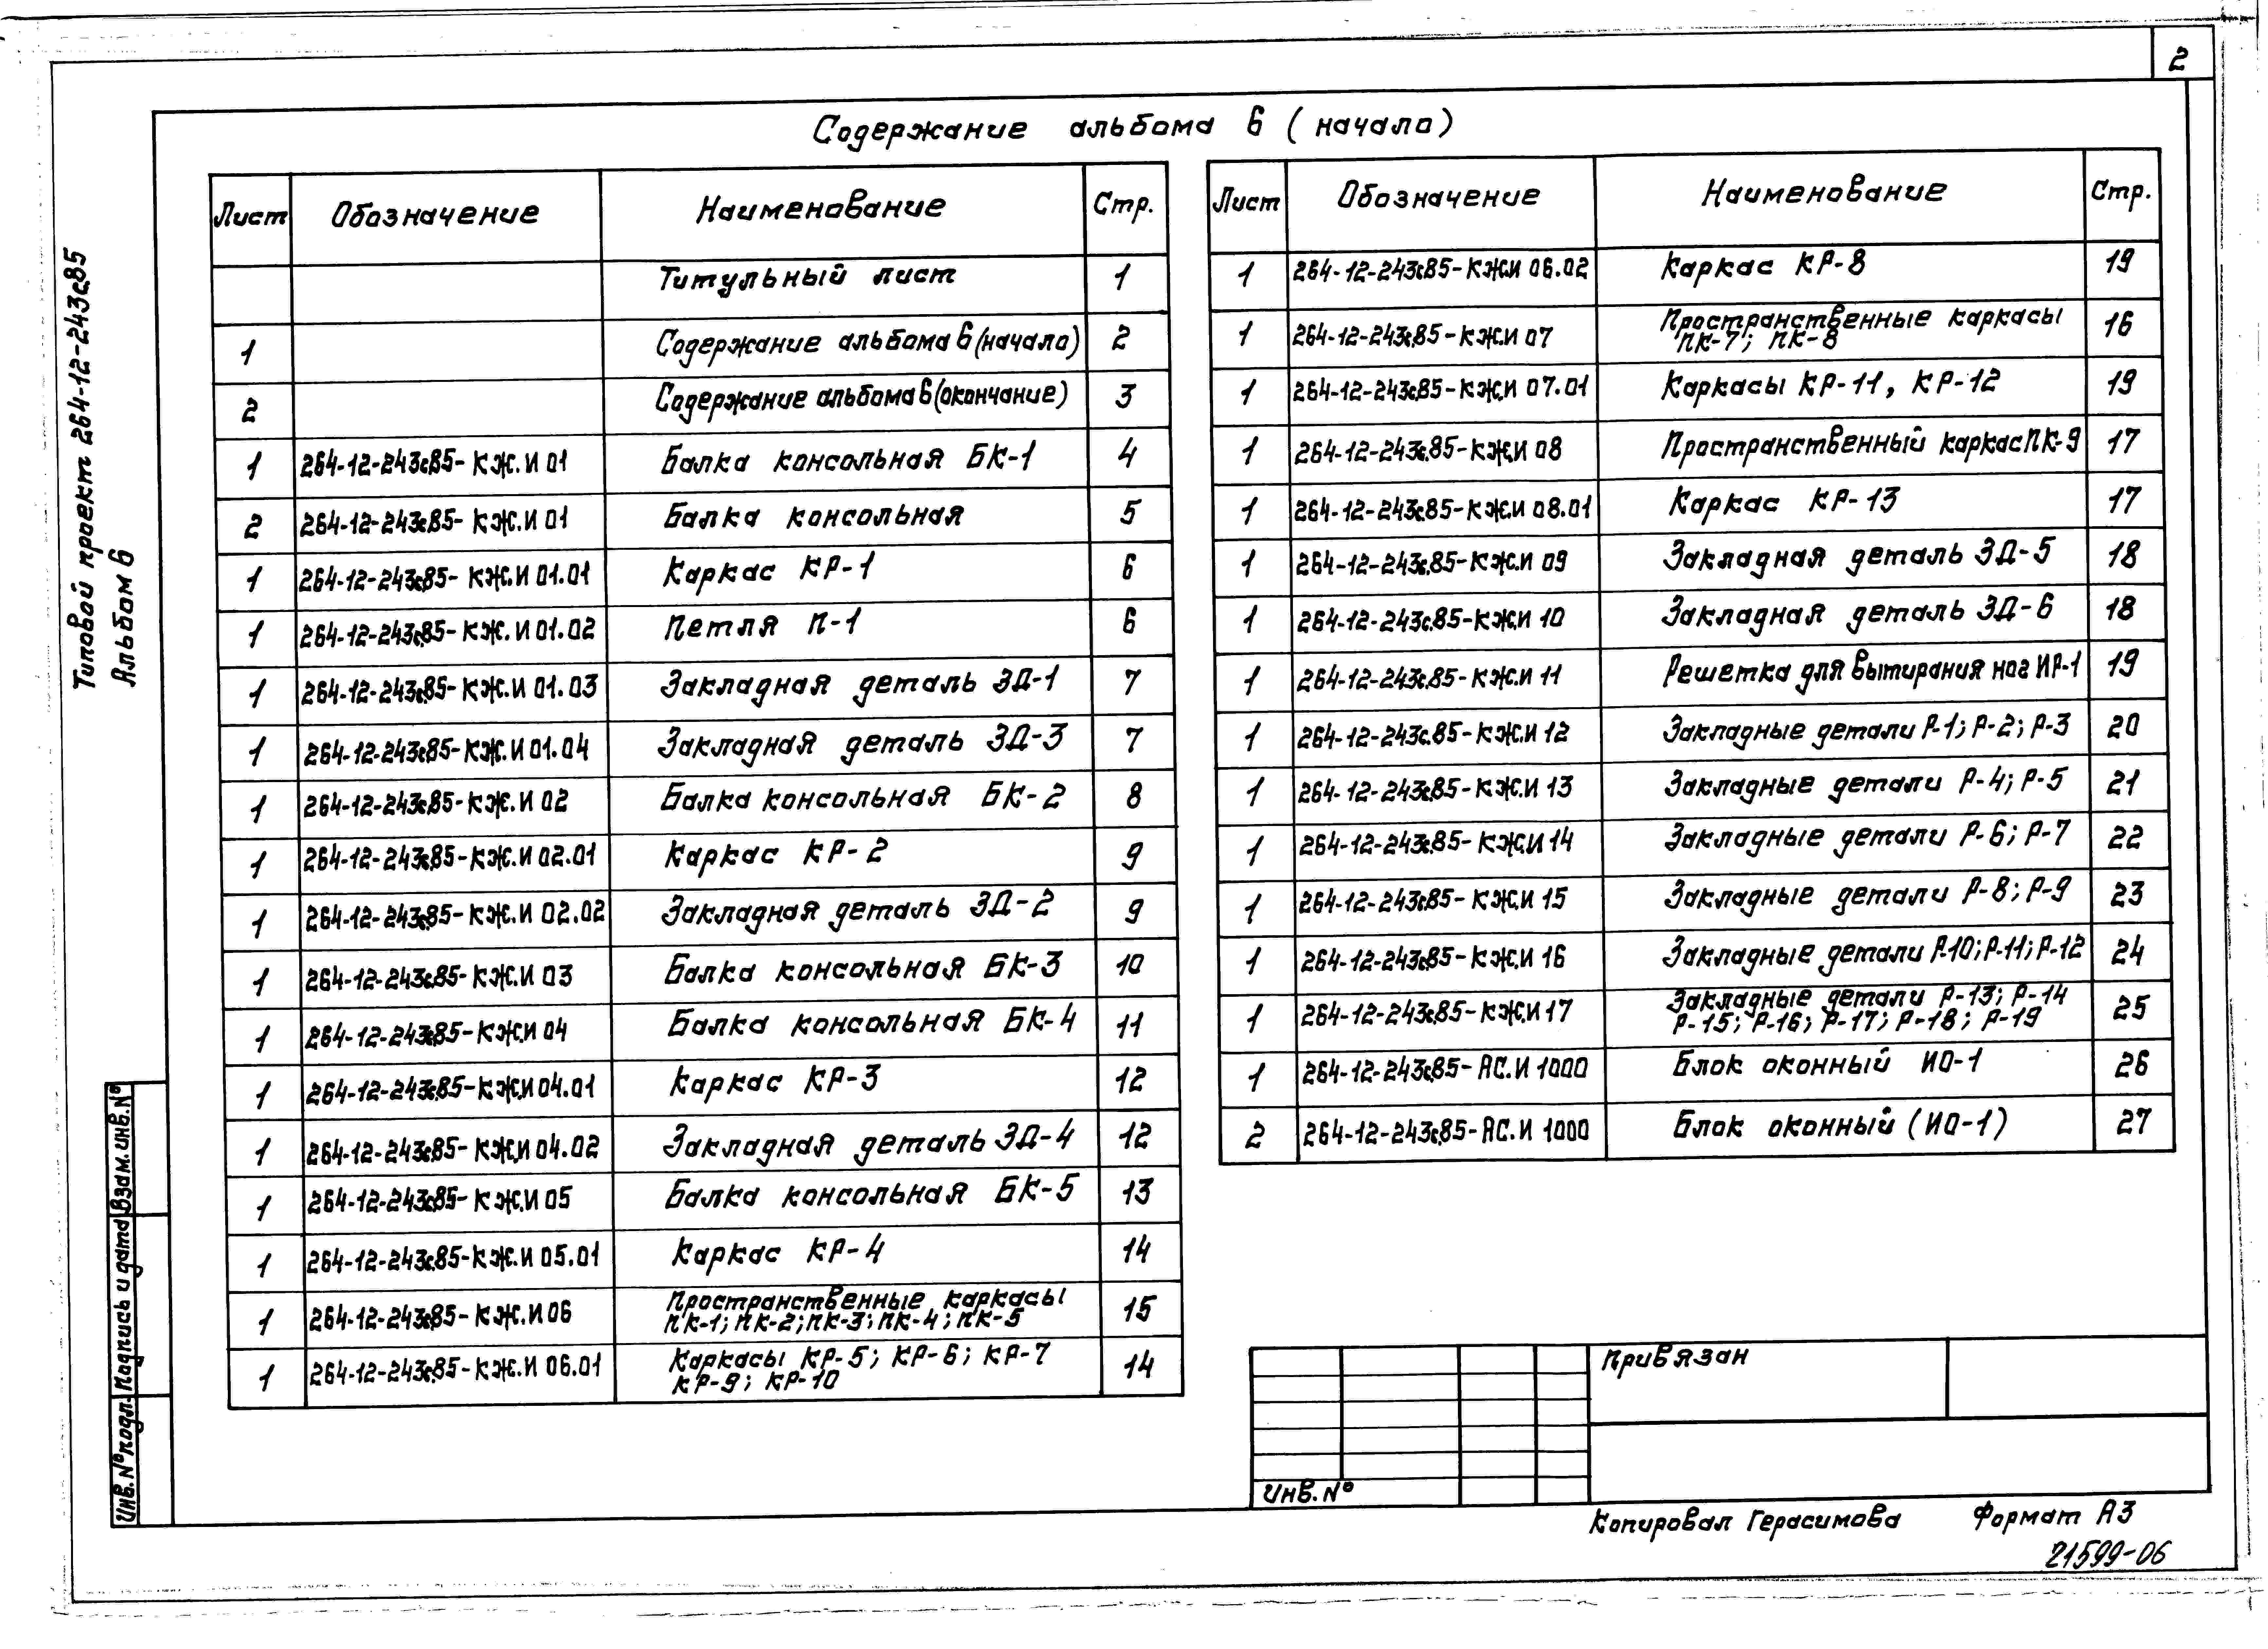 2
Содержание альбома 6 (начало)
Типовой проект 264-12-243с.85
Альбом 6
Лист Обозначение Наименование Стр.
Титульный лист 1
1 Содержание альбома 6 (начало) 2
2 Содержание альбома 6 (окончание) 3
1 264-12-243с.85-КЖ.И 01 Балка консольная БК-1 4
2 264-12-243с.85-КЖ.И 01 Балка консольная 5
1 264-12-243с.85-КЖ.И 01.01 Каркас КР-1 6
1 264-12-243с.85-КЖ.И 01.02 Петля П-1 6
1 264-12-243с.85-КЖ.И 01.03 Закладная деталь ЗД-1 7
1 264-12-243с.85-КЖ.И 01.04 Закладная деталь ЗД-3 7
1 264-12-243с.85-КЖ.И 02 Балка консольная БК-2 8
1 264-12-243с.85-КЖ.И 02.01 Каркас КР-2 9
1 264-12-243с.85-КЖ.И 02.02 Закладная деталь ЗД-2 9
1 264-12-243с.85-КЖ.И 03 Балка консольная БК-3 10
1 264-12-243с.85-КЖ.И 04 Балка консольная БК-4 11
1 264-12-243с.85-КЖ.И 04.01 Каркас КР-3 12
1 264-12-243с.85-КЖ.И 04.02 Закладная деталь ЗД-4 12
1 264-12-243с.85-КЖ.И 05 Балка консольная БК-5 13
1 264-12-243с.85-КЖ.И 05.01 Каркас КР-4 14
1 264-12-243с.85-КЖ.И 06 Пространственные каркасы 15
ПК-1; ПК-2; ПК-3; ПК-4; ПК-5
1 264-12-243с.85-КЖ.И 06.01 Каркасы КР-5; КР-6; КР-7 14
КР-9; КР-10
Лист Обозначение Наименование Стр.
1 264-12-243с.85-КЖ.И 06.02 Каркас КР-8 19
1 264-12-243с.85-КЖ.И 07 Пространственные каркасы 16
ПК-7; ПК-8
1 264-12-243с.85-КЖ.И 07.01 Каркасы КР-11, КР-12 19
1 264-12-243с.85-КЖ.И 08 Пространственный каркас ПК-9 17
1 264-12-243с.85-КЖ.И 08.01 Каркас КР-13 17
1 264-12-243с.85-КЖ.И 09 Закладная деталь ЗД-5 18
1 264-12-243с.85-КЖ.И 10 Закладная деталь ЗД-6 18
1 264-12-243с.85-КЖ.И 11 Решетка для вытирания ног ИР-1 19
1 264-12-243с.85-КЖ.И 12 Закладные детали Р-1; Р-2; Р-3 20
1 264-12-243с.85-КЖ.И 13 Закладные детали Р-4; Р-5 21
1 264-12-243с.85-КЖ.И 14 Закладные детали Р-6; Р-7 22
1 264-12-243с.85-КЖ.И 15 Закладные детали Р-8; Р-9 23
1 264-12-243с.85-КЖ.И 16 Закладные детали Р-10; Р-11; Р-12 24
1 264-12-243с.85-КЖ.И 17 Закладные детали Р-13; Р-14 25
Р-15; Р-16; Р-17; Р-18; Р-19
1 264-12-243с.85-АС.И 1000 Блок оконный ИО-1 26
2 264-12-243с.85-АС.И 1000 Блок оконный (ИО-1) 27
Инв. № подл. Подпись и дата Взам. инв. №
Привязан
Инв. №
Копировал Герасимова Формат А3
21599-06